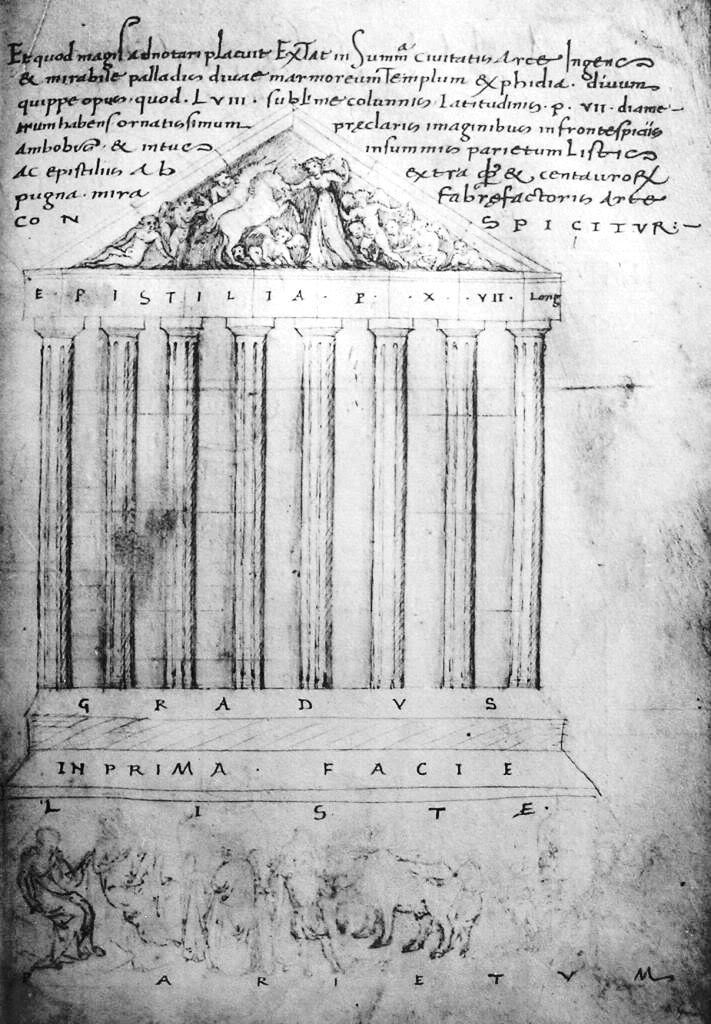 Et quod magis adnotari placuit Extat in Summa Civitatis Arce Ingens
& mirabile palladis divae marmoreum Templum & phidia. divum
quippe opus. quod. LVIII. sublime columnis Latitudinis. p. VII. diame-
trum habens ornatissimum præclaris imaginibus in frontespiciis
Ambobus. & intus in summis parietum Listis
ac epistiliis ab extra & centauro
pugna. mira Fabrefactoris Arte
CON SPICITUR:-
E·PISTILIA·P·X·VII· Long
GRADVS
IN PRIMA. FACIE
LISTÆ.
PARIETVM